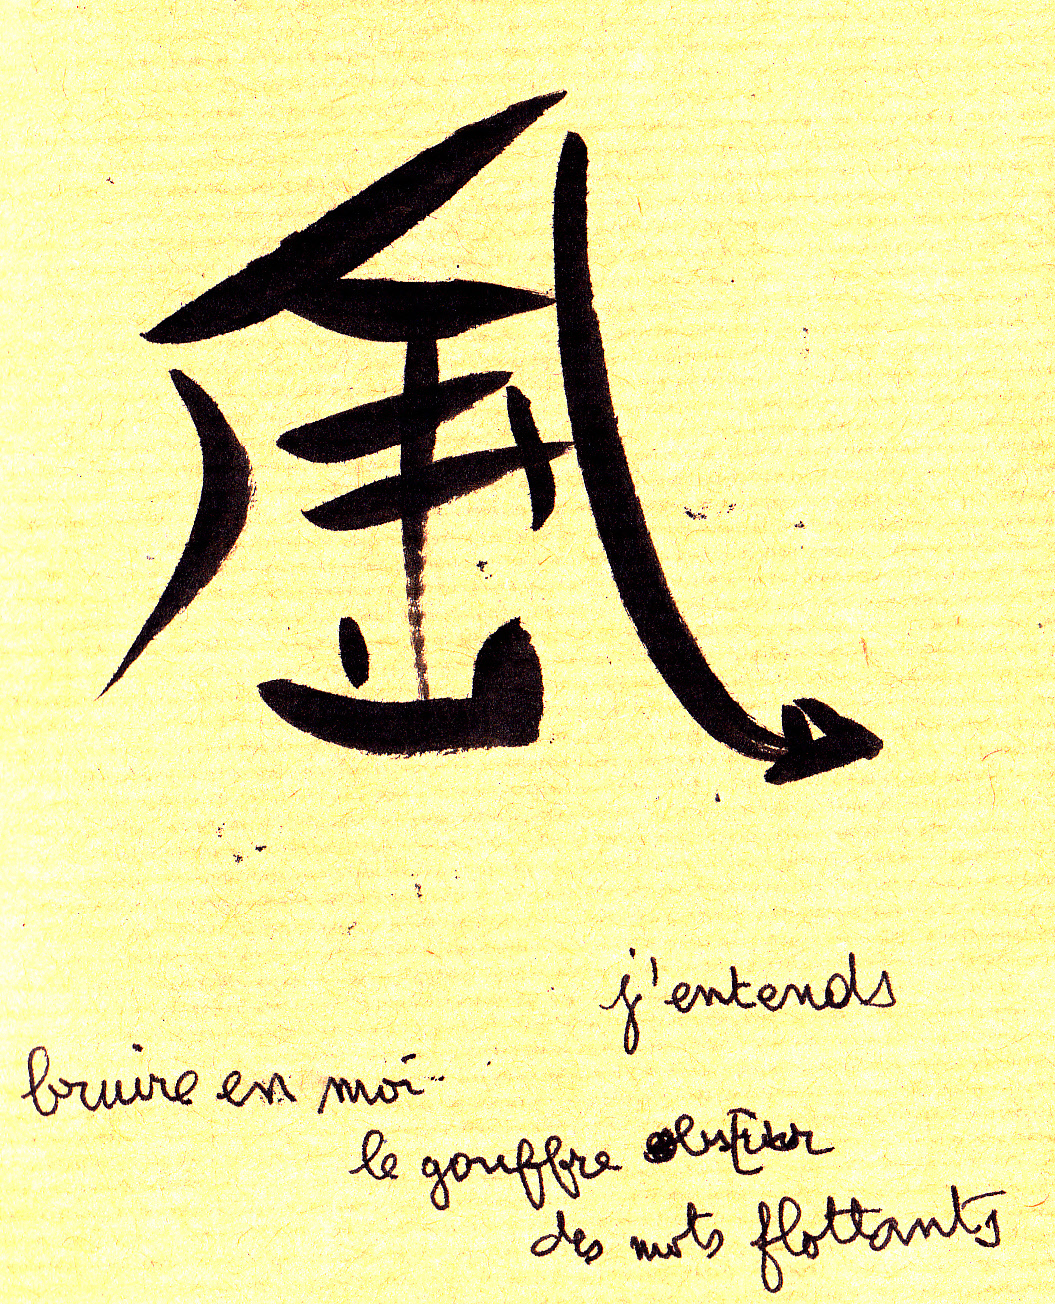 j'entends
bruire en moi
le gouffre
des mots flottants